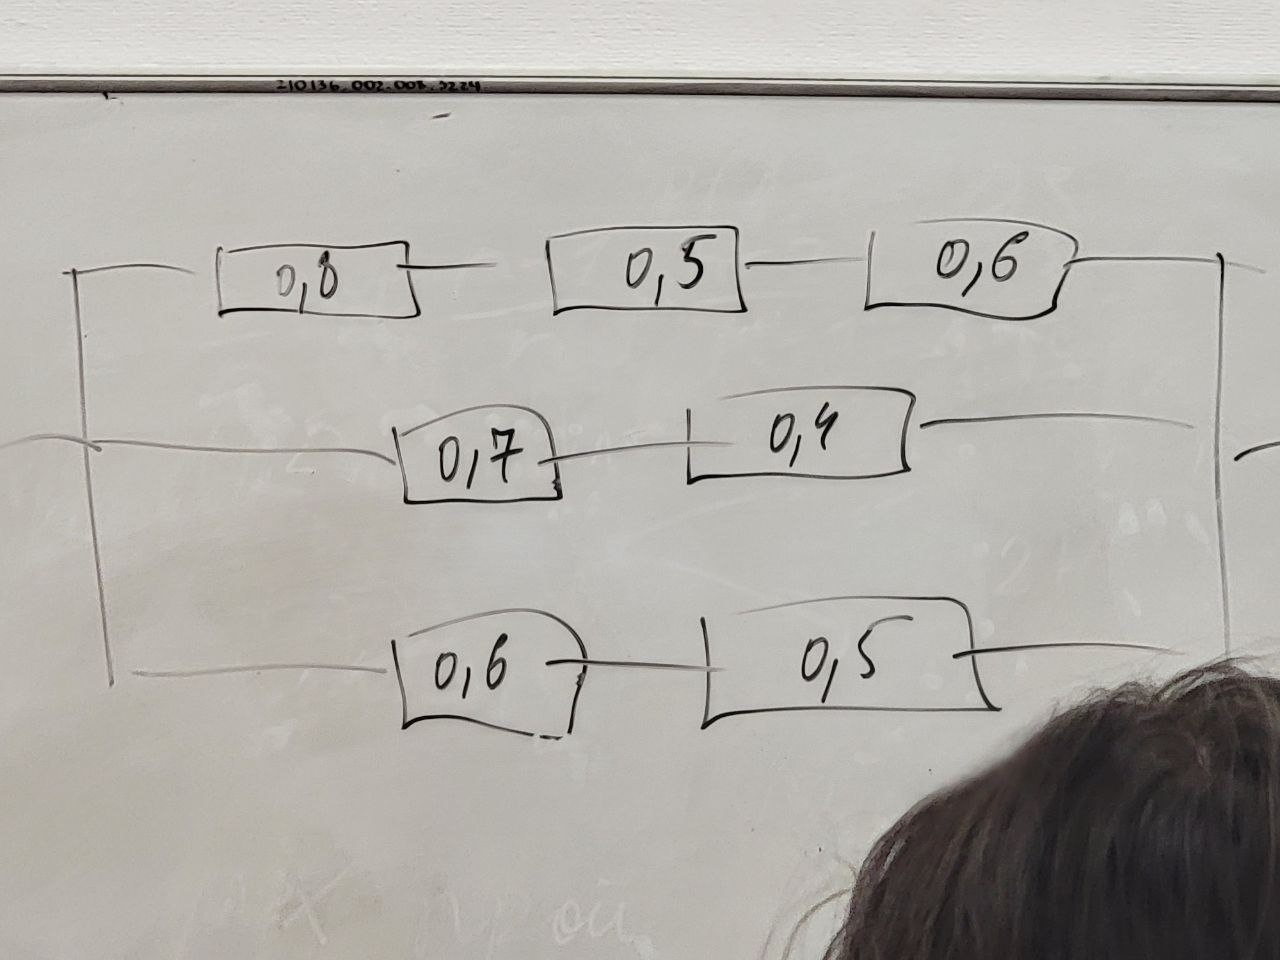 210136.002.008.3224
0,8 0,5 0,6
0,7 0,4
0,6 0,5